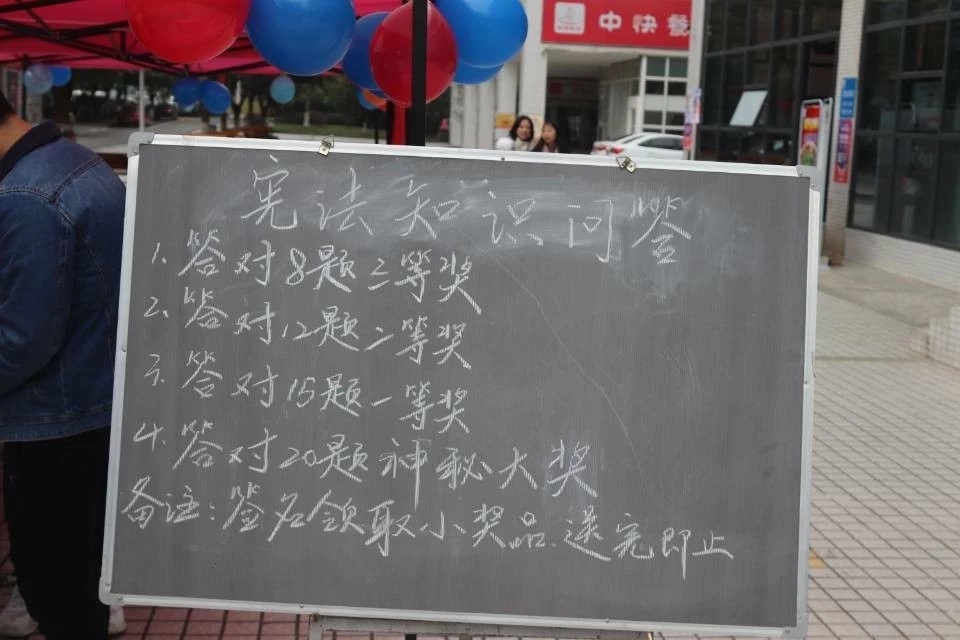 中快餐
宪法知识问答
1. 答对8题三等奖
2. 答对12题二等奖
3. 答对15题一等奖
4. 答对20题神秘大奖
备注:签名领取小奖品.送完即止